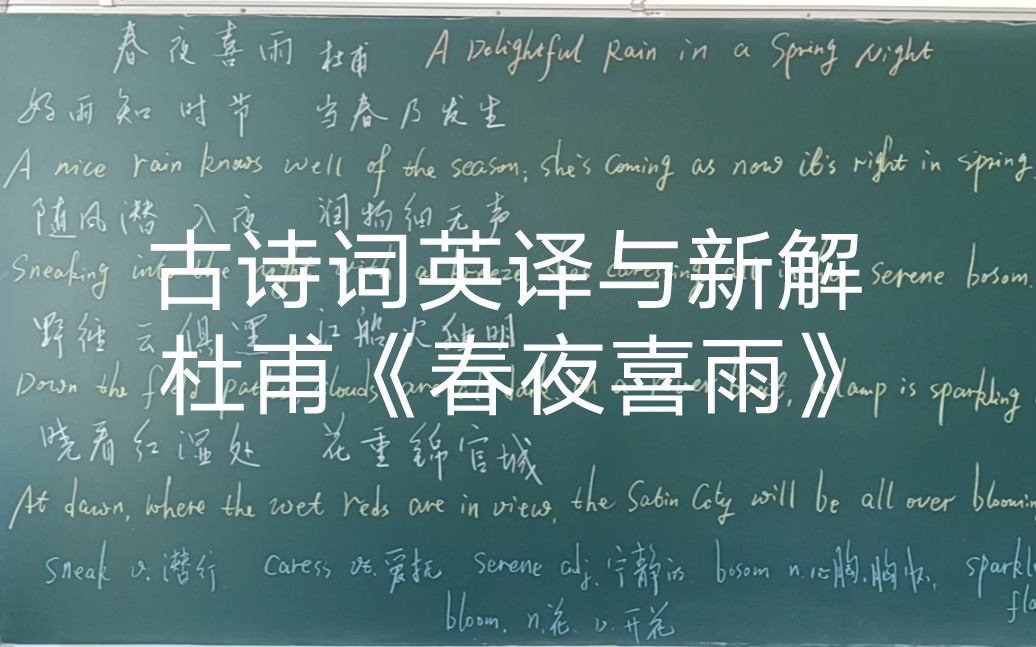 春夜喜雨 杜甫 A Delightful Rain in a Spring Night
好雨知时节 当春乃发生
A nice rain knows well of the season; she's coming as now it's right in spring.
随风潜入夜 润物细无声
古诗词英译与新解
Sneaking into the night with a breeze, she's caressing all in serene bosom
野径云俱黑 江船火独明
杜甫《春夜喜雨》
Down the field paths, clouds are all dark; a lamp is sparkling
晓看红湿处 花重锦官城
At dawn, where the wet reds are in view, the Satin City will be all over bloomin
sneak v. 潜行 caress vt. 爱抚 serene adj. 宁静的 bosom n. 心胸,胸怀 sparkl
fla
bloom. n. 花 v. 开花